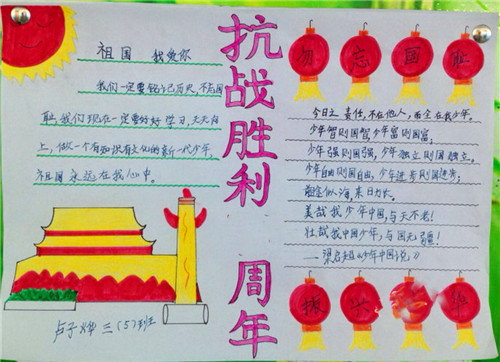 祖国 我爱你
我们一定要铭记历史，不忘国
耻，我们现在一定要好好学习，天天向
上，做一个有知识有文化的新一代少年，
祖国永远在我心中。
卢子烨 三（5）班
抗战胜利 周年
勿忘国耻
今日之责任，不在他人，而全在我少年，
少年智则国智，少年富则国富，
少年强则国强，少年独立则国独立，
少年自由则国自由，少年进步则国进步，
前途似海，来日方长，
美哉我少年中国，与天不老！
壮哉我中国少年，与国无疆！
——梁启超《少年中国说》
振兴 华